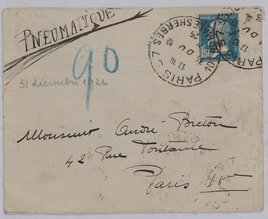 PNEUMATIQUE
90
31 décembre 1926
PARIS
MALESHERBES
Monsieur André Breton
42 Rue Fontaine
Paris